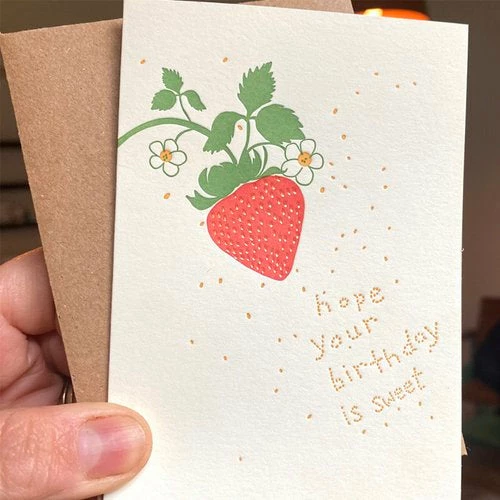 hope
your
birthday
is sweet